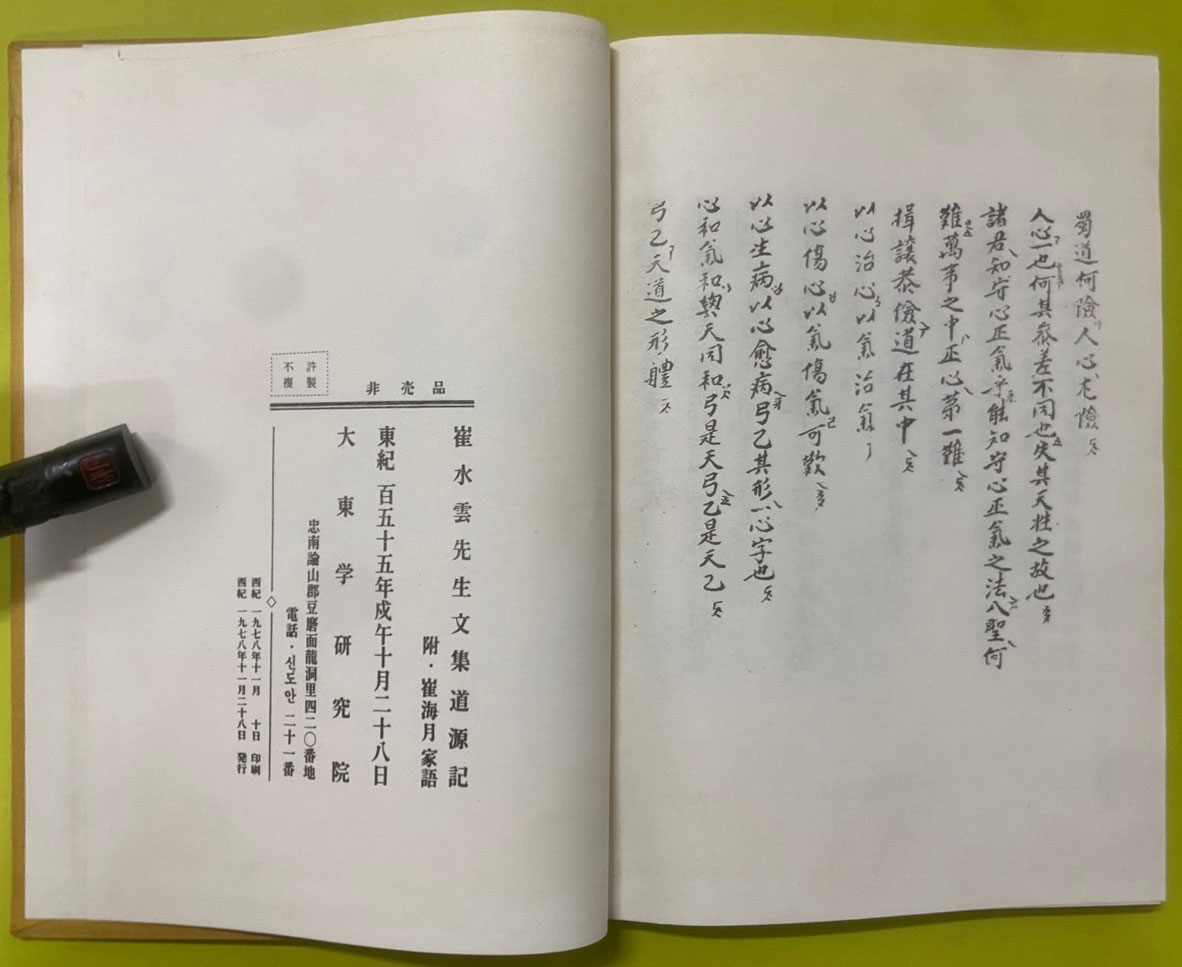 蜀道何險人心尤險
人心一也何其參差不同也失其天性之故也
諸君知守心正氣乎能知守心正氣之法入聖何
難萬事之中正心第一難
揖讓恭儉道在其中
以心治心以氣治氣
以心傷心以氣傷氣可歎
以心生病以心愈病弓乙其形一心字也
心和氣和與天同和弓是天弓乙是天乙
弓乙天道之形體
崔水雲先生文集道源記
附・崔海月家語
東紀 百五十五年戍午十月二十八日
大東学研究院
忠南論山郡豆磨面龍洞里四二〇番地
電話・신도안 二十一番
西紀 一九七八年十一月 十日 印刷
西紀 一九七八年十一月二十八日 発行
非売品
許製
不複